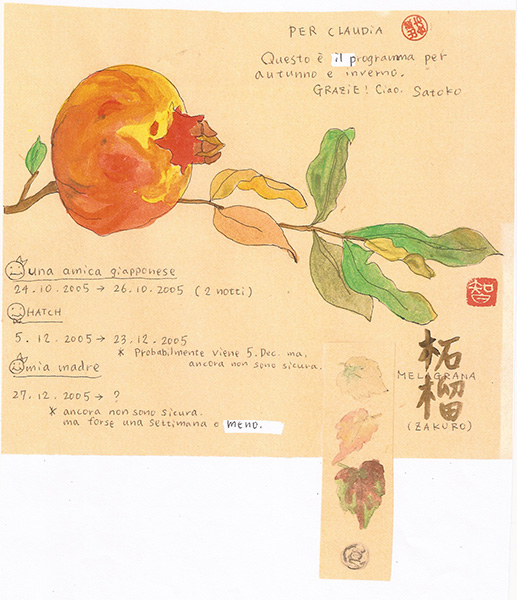 PER CLAUDIA
Questo è il programma per
autunno e inverno.
GRAZIE! Ciao. Satoko
una amica giapponese
24.10.2005 → 26.10.2005 (2 notti)
HATCH
5.12.2005 → 23.12.2005
* Probabilmente viene 5.Dec. ma,
ancora non sono sicura.
mia madre
27.12.2005 → ?
* ancora non sono sicura.
ma forse una settimana o meno.
智
柘榴
MELAGRANA
(ZAKURO)